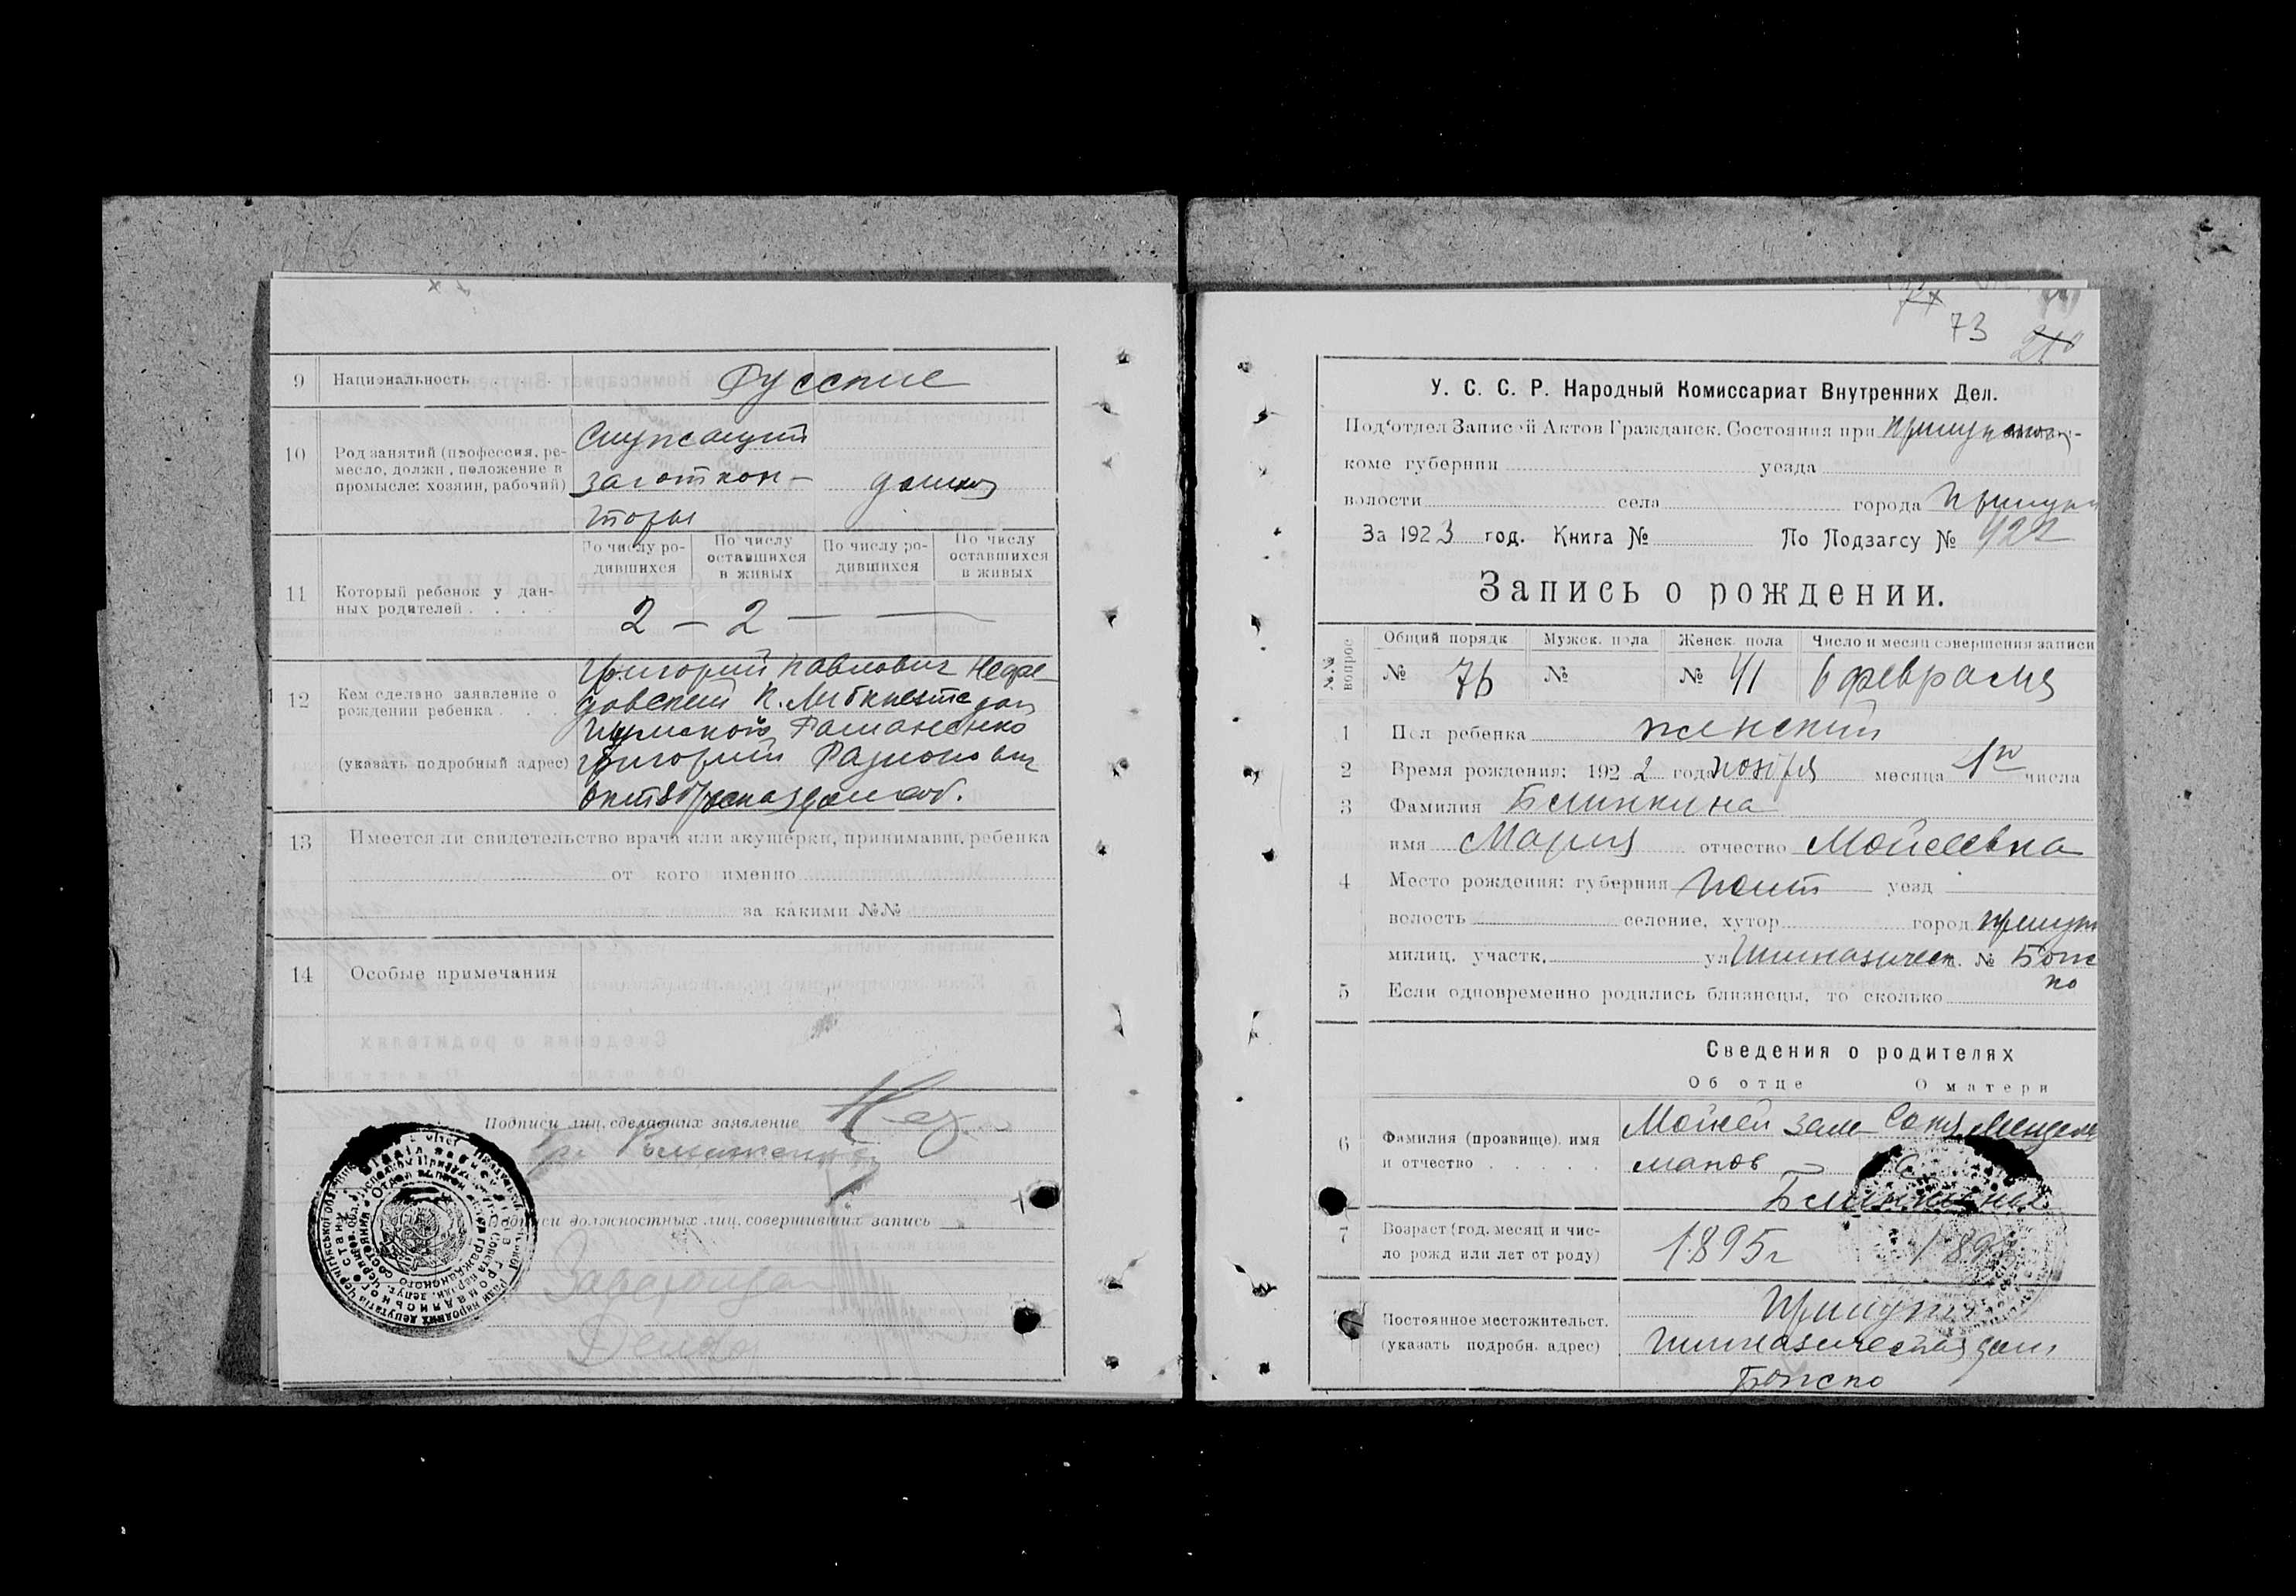 9 Национальность Русские
10 Род занятий (профессия, ре-
месло, должн., положение в
промысле: хозяин, рабочий)
Служащий
заготкон-
торы
домхоз
11 Который ребенок у дан-
ных родителей
По числу ро-
дившихся
По числу
оставшихся
в живых
По числу ро-
дившихся
По числу
оставшихся
в живых
2 — 2 —
12 Кем сделано заявление о
рождении ребенка
(указать подробный адрес)
Григорий Павлович Нефе-
довский К. Либкнехта дом
Романенко
Григорий Родионович
13 Имеется ли свидетельство врача или акушерки, принимавш. ребенка
от кого именно
за какими №№
14 Особые примечания
Подписи лиц, сделавших заявление
Подписи должностных лиц, совершивших запись
73
У. С. С. Р. Народный Комиссариат Внутренних Дел.
Под‘отдел Записей Актов Гражданск. Состояния при
коме губернии уезда
волости села города Прилуки
За 1923 год. Книга № По Подзагсу № 922
Запись о рождении.
№№ вопрос
Общий порядк Мужск. пола Женск. пола Число и месяц совершения записи
№ 76 № № 41 6 февраля
1 Пол ребенка женский
2 Время рождения: 1922 года ноября месяца 1го числа
3 Фамилия Блинкина
имя Мария отчество Моисеевна
4 Место рождения: губерния Полт уезд
волость селение, хутор город Прилуки
милиц. участк. ул Гимназическ. № Божко
5 Если одновременно родились близнецы, то сколько
Сведения о родителях
Об отце О матери
6 Фамилия (прозвище), имя
и отчество
Мойсей Залманов
Соня Мендел
Блинкины
7 Возраст (год, месяц и чис-
ло рожд или лет от роду)
1895 г
Постоянное местожительст.
(указать подробн. адрес)
Прилуки
Гимназическая дом
Божко